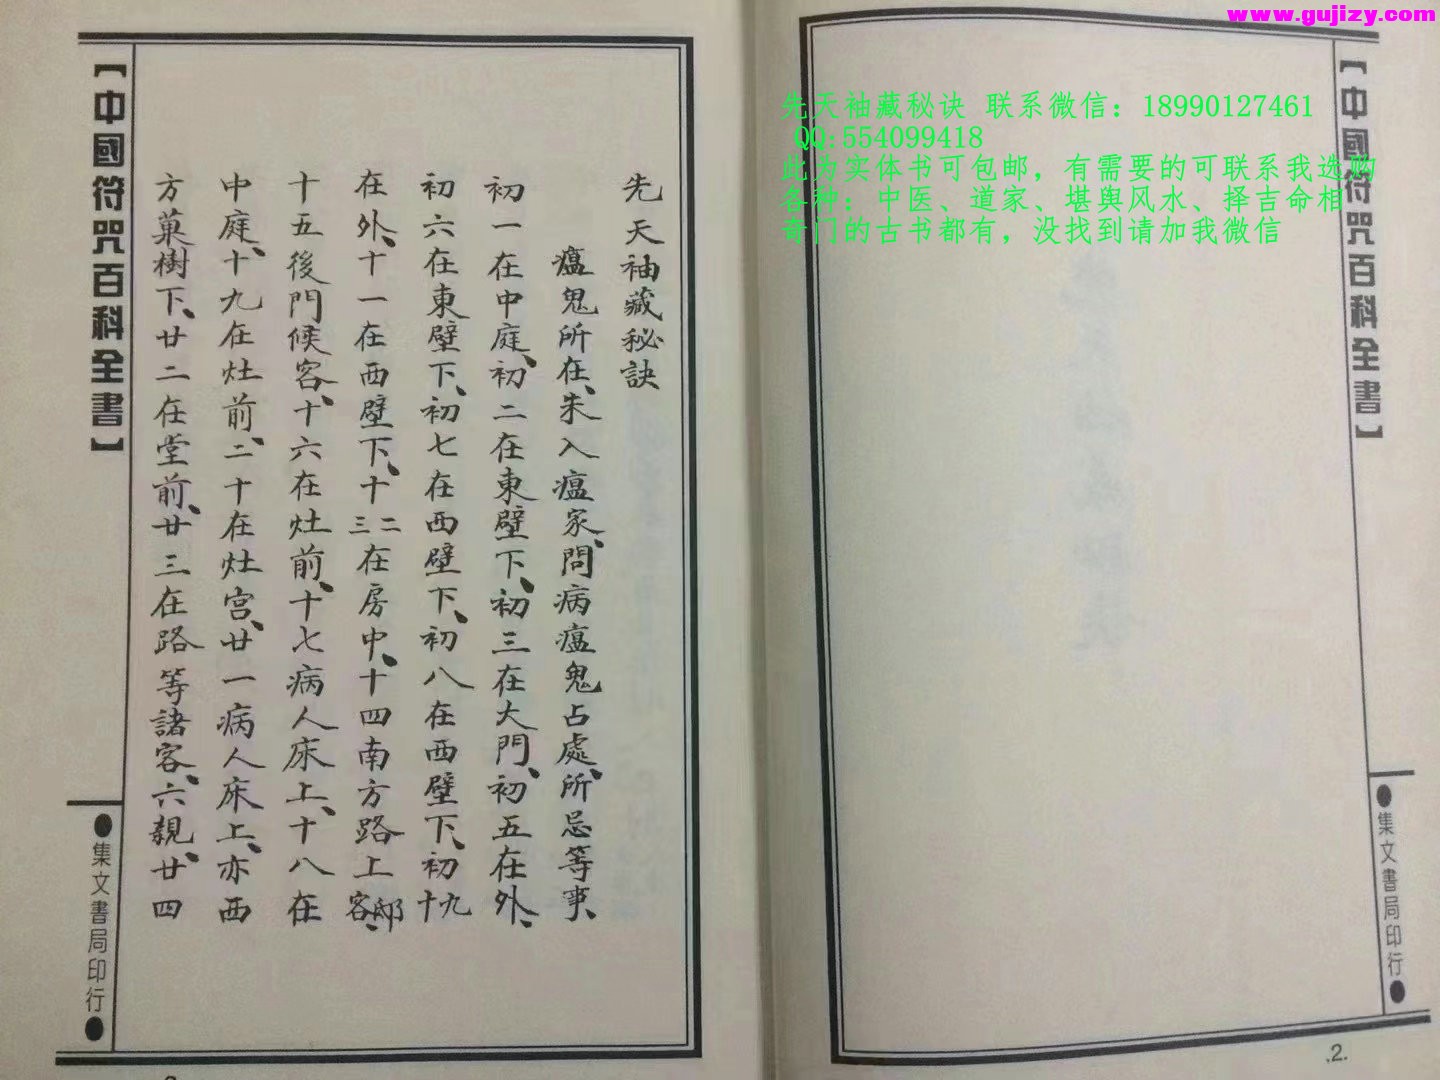 www.gujizy.com
先天袖藏秘诀 联系微信：18990127461
QQ:554099418
此为实体书可包邮，有需要的可联系我选购
各种：中医、道家、堪舆风水、择吉命相
奇门的古书都有，没找到请加我微信
【中國符咒百科全書】
●集文書局印行●
.2.
先天袖藏秘訣
瘟鬼所在、未入瘟家、問病瘟鬼占處、所忌等事、
初一在中庭、初二在東壁下、初三在大門、初五在外、
初六在東壁下、初七在西壁下、初八在西壁下、初九十
在外、十一在西壁下、十二三在房中、十四南方路上邸客、
十五後門候客、十六在灶前、十七病人床上、十八在
中庭、十九在灶前、二十在灶宫、廿一病人床上、亦西
方菓樹下、廿二在堂前、廿三在路等諸客、六親、廿四
【中國符咒百科全書】
●集文書局印行●